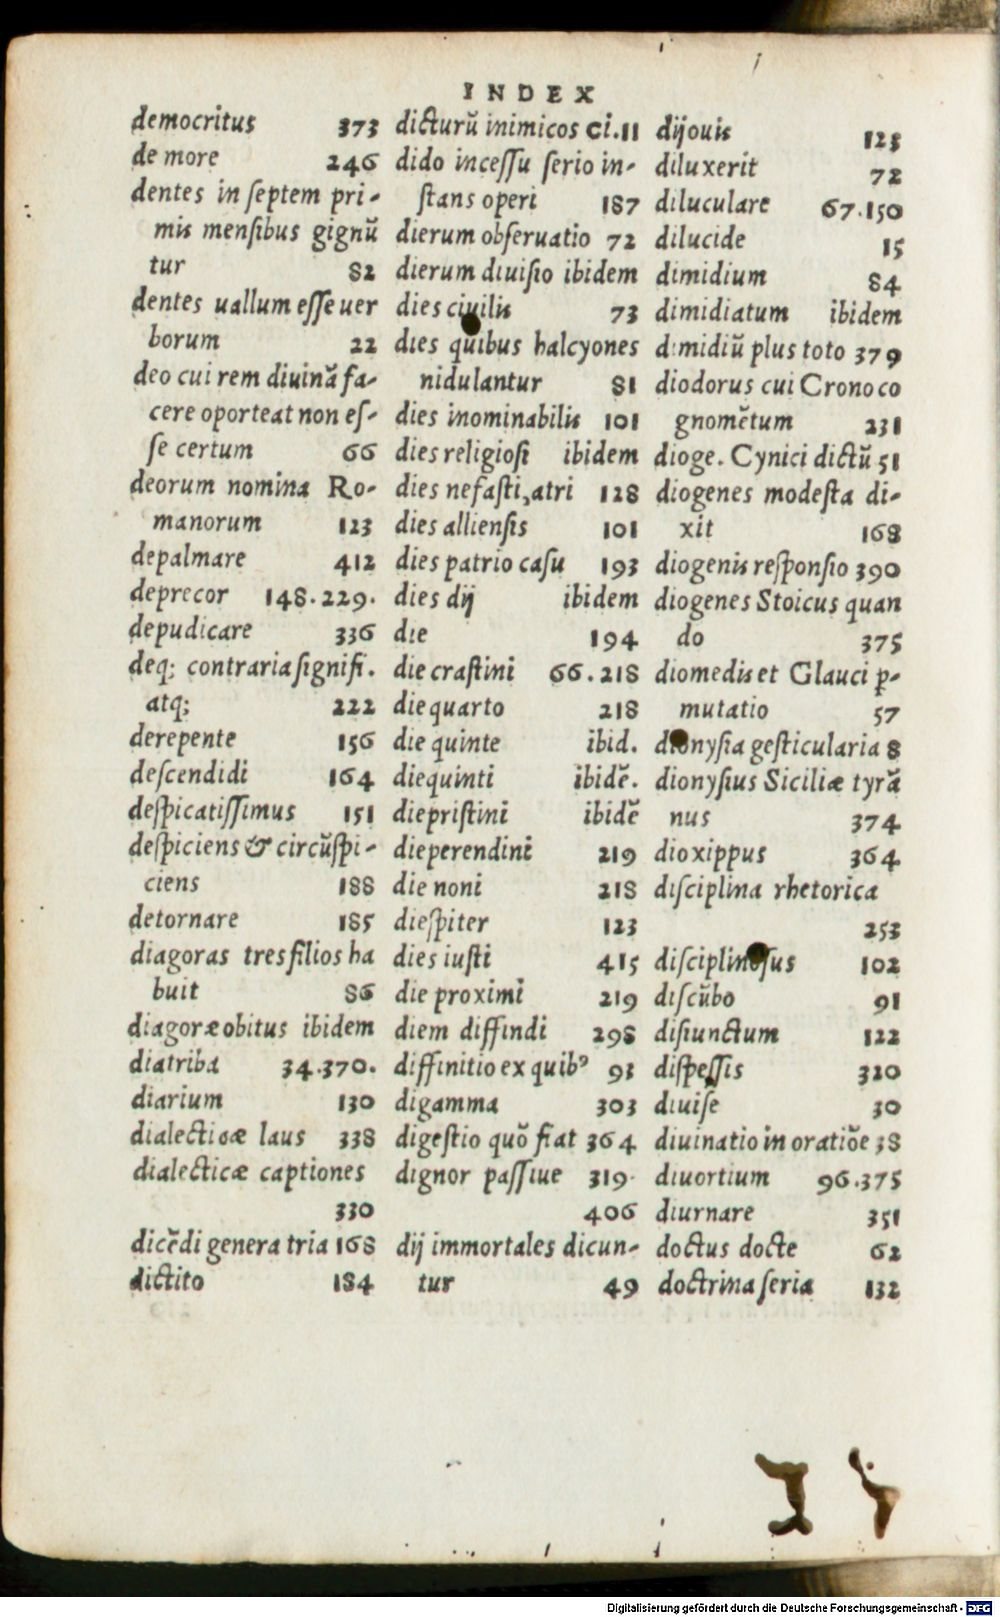 INDEX
democritus 373
de more 246
dentes in septem pri-
mis mensibus gignũ
tur 82
dentes uallum esse uer
borum 22
deo cui rem diuinã fa-
cere oporteat non es-
se certum 66
deorum nomina Ro-
manorum 123
depalmare 412
deprecor 148.229.
depudicare 336
deq; contraria signifi.
atq; 222
derepente 156
descendidi 164
despicatissimus 151
despiciens & circũspi-
ciens 188
detornare 185
diagoras tres filios ha
buit 86
diagoræ obitus ibidem
diatriba 34.370.
diarium 130
dialecticæ laus 338
dialecticæ captiones
330
dicẽdi genera tria 168
dictito 184
dicturũ inimicos ci.11
dido incessu serio in-
stans operi 187
dierum obseruatio 72
dierum diuisio ibidem
dies ciuilis 73
dies quibus halcyones
nidulantur 81
dies inominabilis 101
dies religiosi ibidem
dies nefasti, atri 128
dies alliensis 101
dies patrio casu 193
dies dij ibidem
die 194
die crastini 66.218
die quarto 218
die quinte ibid.
diequinti ibidẽ.
diepristini ibidẽ
dieperendini 219
die noni 218
diespiter 123
dies iusti 415
die proximi 219
diem diffindi 298
diffinitio ex quibꝰ 93
digamma 303
digestio quõ fiat 364
dignor passiue 319.
406
dij immortales dicun-
tur 49
dijouis 123
diluxerit 72
diluculare 67.150
dilucide 15
dimidium 84
dimidiatum ibidem
dimidiũ plus toto 379
diodorus cui Crono co
gnomẽtum 231
dioge. Cynici dictũ 51
diogenes modesta di-
xit 168
diogenis responsio 390
diogenes Stoicus quan
do 375
diomedis et Glauci p-
mutatio 57
dionysia gesticularia 8
dionysius Siciliæ tyrã
nus 374
dioxippus 364
disciplina rhetorica
253
disciplinosus 102
discũbo 91
disiunctum 122
dispessis 320
diuise 30
diuinatio in oratiõe 38
diuortium 96.375
diurnare 351
doctus docte 62
doctrina seria 132
Digitalisierung gefördert durch die Deutsche Forschungsgemeinschaft - DFG